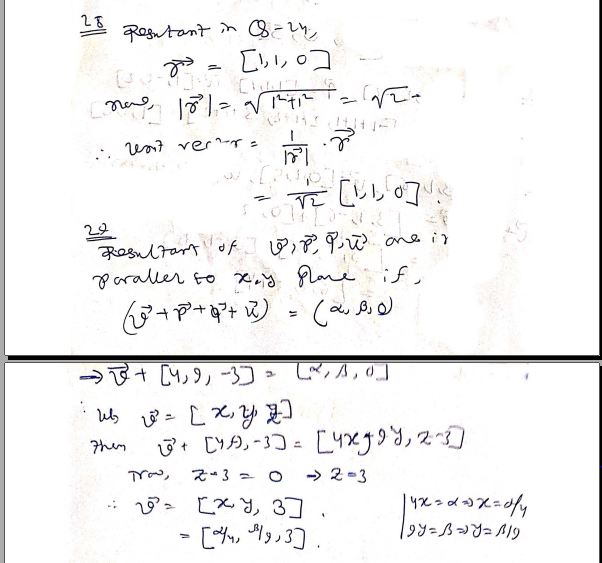 28 Resultant in Q-24,
r⃗ = [1, 1, 0]
now, |r⃗| = √(1²+1²) = √2
∴ unit vector = 1/|r⃗| · r⃗
= 1/√2 [1, 1, 0].
29
Resultant of v⃗, p⃗, q⃗, u⃗ one is
parallel to x.y plane if,
(v⃗ + p⃗ + q⃗ + u⃗) = (α, β, 0)
⇒ v⃗ + [4, 9, -3] = [α, β, 0]
v⃗ = [x, y, z]
then v⃗ + [4, 9, -3] = [4x, 9y, z-3]
Now, z-3 = 0 → z=3
∴ v⃗ = [x, y, 3].
= [α/4, β/9, 3].
4x = α ⇒ x = α/4
9y = β ⇒ y = β/9